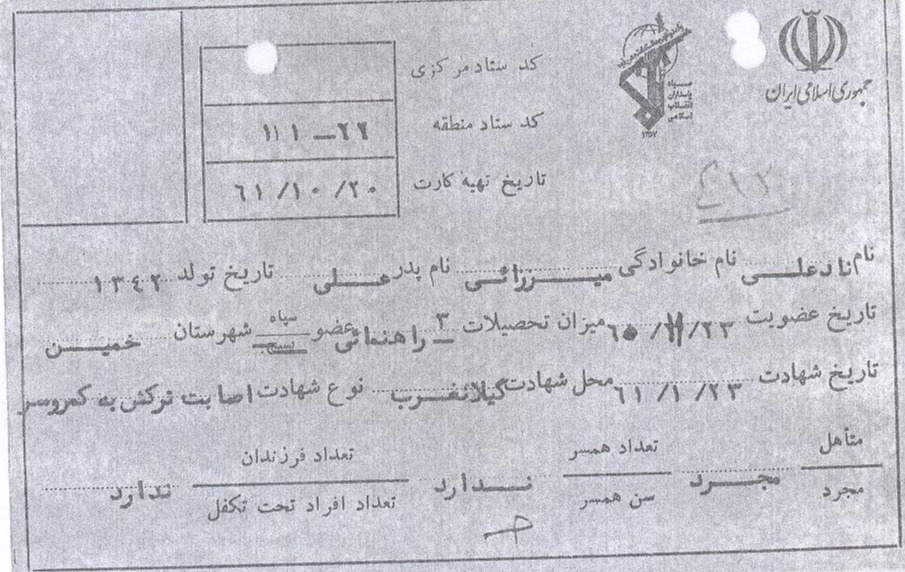 جمهوری اسلامی ایران
سپاه
پاسداران
انقلاب
اسلامی
۱۳۵۷
کد ستاد مرکزی
کد ستاد منطقه ۲۶ – ۱۱۱
تاریخ تهیه کارت ۶۱/۱۰/۲۰
۴۱۲
نام نادعلی نام خانوادگی میرزائی نام پدر علی تاریخ تولد ۱۳۴۲
تاریخ عضویت ۶۰/۱۱/۲۳ میزان تحصیلات ۳ راهنمائی عضو سپاه بسیج شهرستان خمین
تاریخ شهادت ۶۱/۱/۲۳ محل شهادت گیلانغرب نوع شهادت اصابت ترکش به کمروسر
متأهل
مجرد
مجرد
تعداد همسر
سن همسر
ندارد
تعداد فرزندان
تعداد افراد تحت تکفل
ندارد